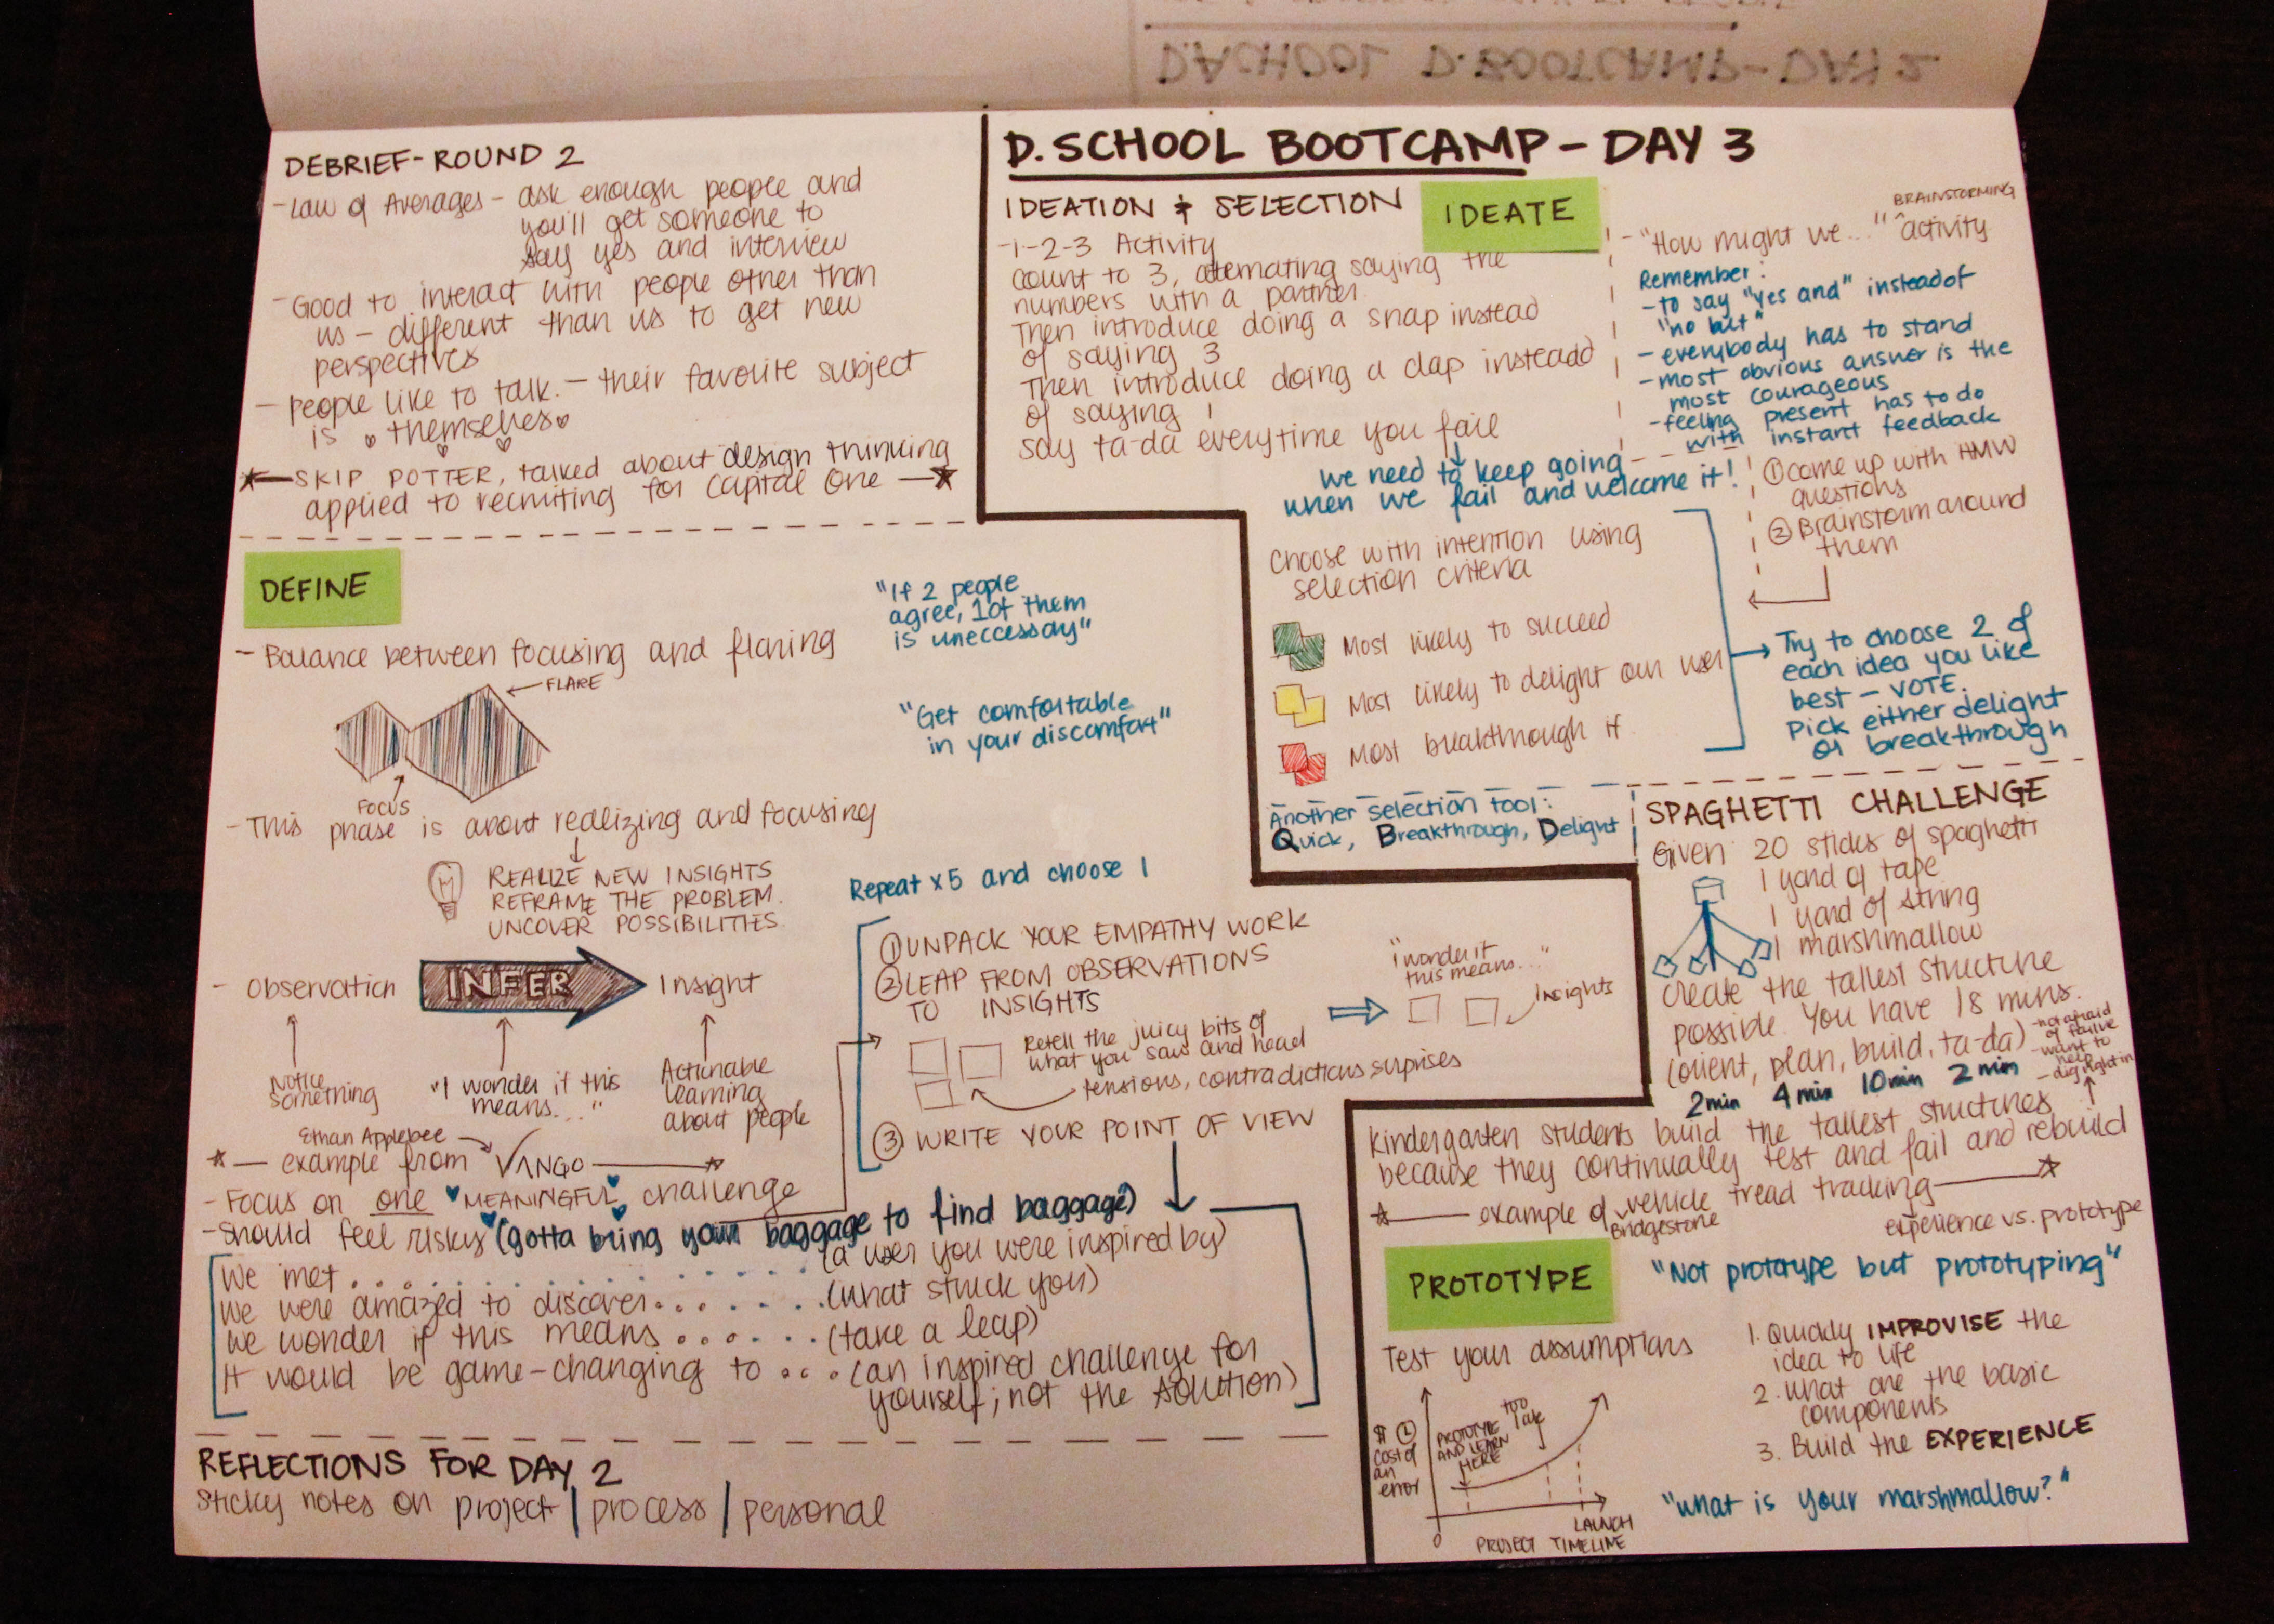 DEBRIEF-ROUND 2
- Law of Averages - ask enough people and
you'll get someone to
say yes and interview
- Good to interact with people other than
us - different than us to get new
perspectives
- people like to talk. - their favorite subject
is themselves
SKIP POTTER, talked about design thinking
applied to recruiting for Capital One
DEFINE
- Balance between focusing and flaring
FLARE
FOCUS
"If 2 people
agree, 1 of them
is uneccessay"
"Get comfortable
in your discomfort"
- This phase is about realizing and focusing
REALIZE NEW INSIGHTS
REFRAME THE PROBLEM.
UNCOVER POSSIBILITIES.
- Observation INFER Insight
Notice
something
"I wonder if this
means..."
Actionable
learning
about people
Ethan Applebee
example from VANGO
- Focus on one MEANINGFUL challenge
- should feel risky (gotta bring your baggage to find baggage)
Repeat x5 and choose 1
① UNPACK YOUR EMPATHY WORK
② LEAP FROM OBSERVATIONS
TO INSIGHTS
Retell the juicy bits of
what you saw and head
tensions, contradictions surprises
"i wonder if
this means..."
Insights
③ WRITE YOUR POINT OF VIEW
We met.............. (a user you were inspired by)
We were amazed to discover....... (what struck you)
We wonder if this means....... (take a leap)
It would be game-changing to .... (an inspired challenge for
yourself; not the solution)
REFLECTIONS FOR DAY 2
Sticky notes on project | process | personal
D.SCHOOL BOOTCAMP - DAY 3
IDEATION & SELECTION
IDEATE
- 1-2-3 Activity
count to 3, alternating saying the
numbers with a partner
Then introduce doing a snap instead
of saying 3
Then introduce doing a clap insteadd
of saying 1
say ta-da everytime you fail
we need to keep going
when we fail and welcome it!
BRAINSTORMING
- "How might we..." activity
Remember:
- to say "yes and" instead of
"no but"
- everybody has to stand
- most obvious answer is the
most courageous
- feeling present has to do
with instant feedback
① Come up with HMW
questions
② Brainstorm around
them
Choose with intention using
selection criteria
Most likely to succeed
Most likely to delight our user
Most breakthrough if
Try to choose 2 of
each idea you like
best - VOTE.
Pick either delight
or breakthrough
Another selection tool:
Quick, Breakthrough, Delight
SPAGHETTI CHALLENGE
Given 20 sticks of spaghetti
1 yard of tape
1 yard of string
1 marshmallow
create the tallest structure
possible. You have 18 mins.
(orient, plan, build, ta-da)
2min 4min 10min 2min
- not afraid
of failure
- want to
help
- dig right in
kindergarten students build the tallest structures
because they continually test and fail and rebuild
example of vehicle tread tracking
Bridgestone
experience vs. prototype
PROTOTYPE
"Not prototype but prototyping"
Test your assumptions
1. Quickly IMPROVISE the
idea to life
2. what are the basic
components
3. Build the EXPERIENCE
"what is your marshmallow?"
cost of
an
error
PROTOTYPE
AND LEARN
HERE
TOO
late
0
LAUNCH
PROJECT TIMELINE
D.SCHOOL D.BOOTCAMP-DAY 2